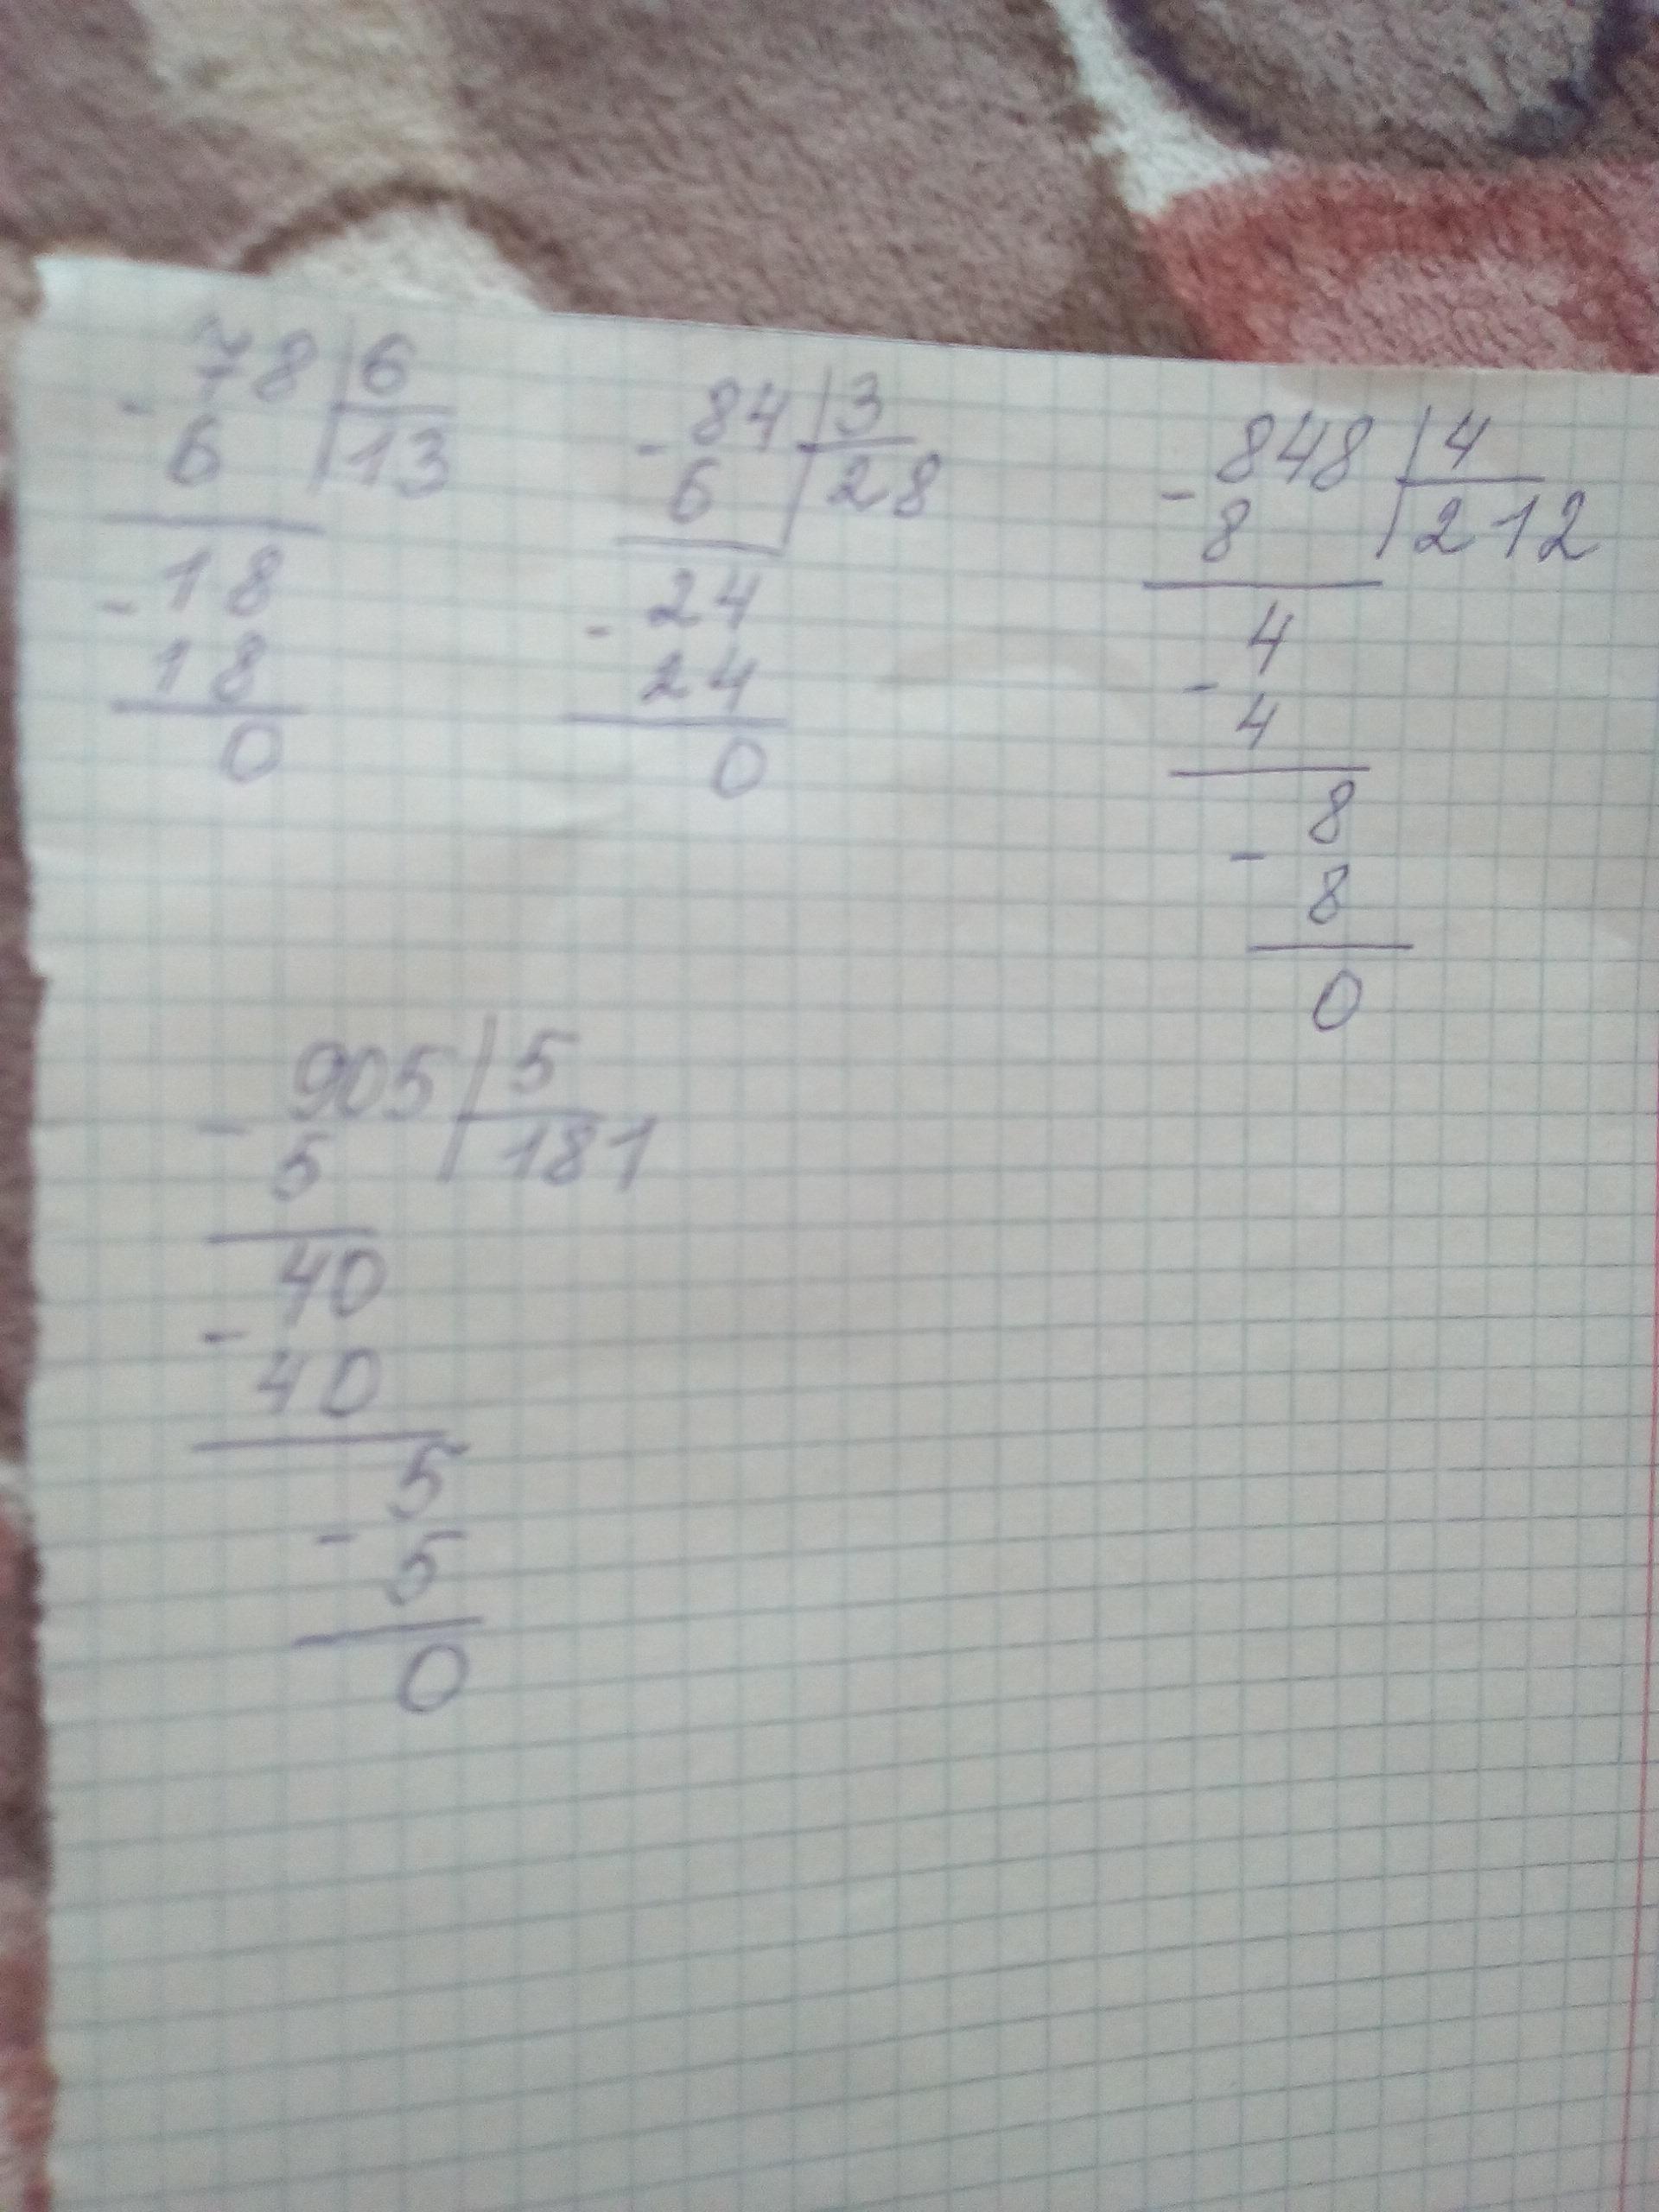 - 78 | 6
6 | 13
- 18
18
0
- 84 | 3
6 | 28
- 24
24
0
- 848 | 4
8 | 212
- 4
4
- 8
8
0
- 905 | 5
5 | 181
- 40
40
- 5
5
0